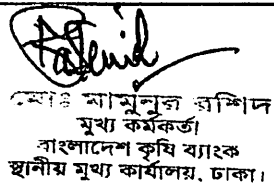 মোঃ মামুনুর রশিদ
মুখ্য কর্মকর্তা
বাংলাদেশ কৃষি ব্যাংক
স্থানীয় মুখ্য কার্যালয়, ঢাকা।